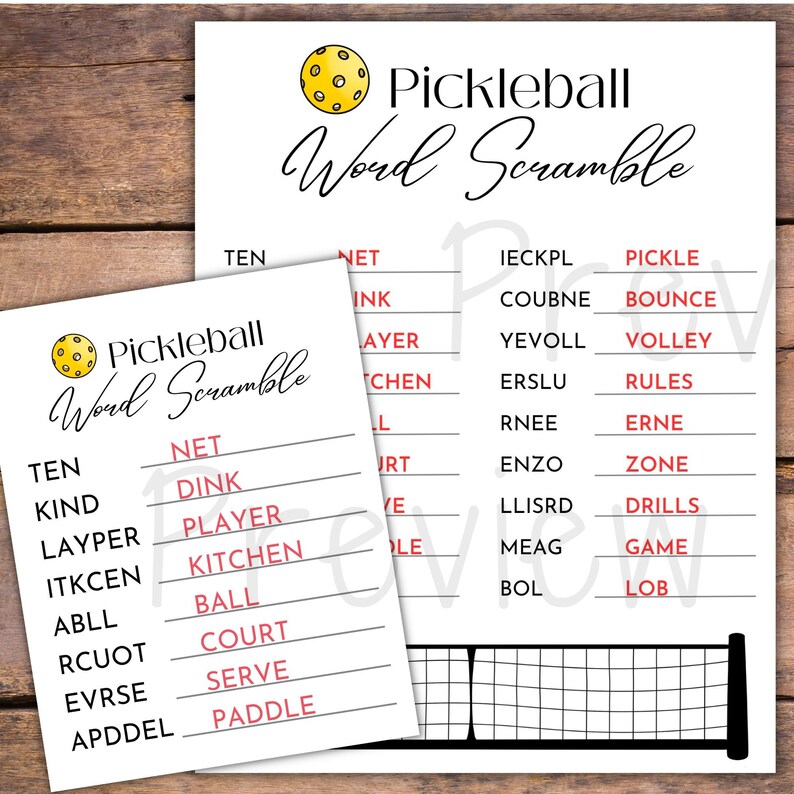 Pickleball
Word Scramble
TEN NET IECKPL PICKLE
INK COUBNE BOUNCE
LAYER YEVOLL VOLLEY
TCHEN ERSLU RULES
LL RNEE ERNE
URT ENZO ZONE
VE LLISRD DRILLS
DLE MEAG GAME
BOL LOB
Prev
Pickleball
Word Scramble
TEN NET
KIND DINK
LAYPER PLAYER
ITKCEN KITCHEN
ABLL BALL
RCUOT COURT
EVRSE SERVE
APDDEL PADDLE
Preview